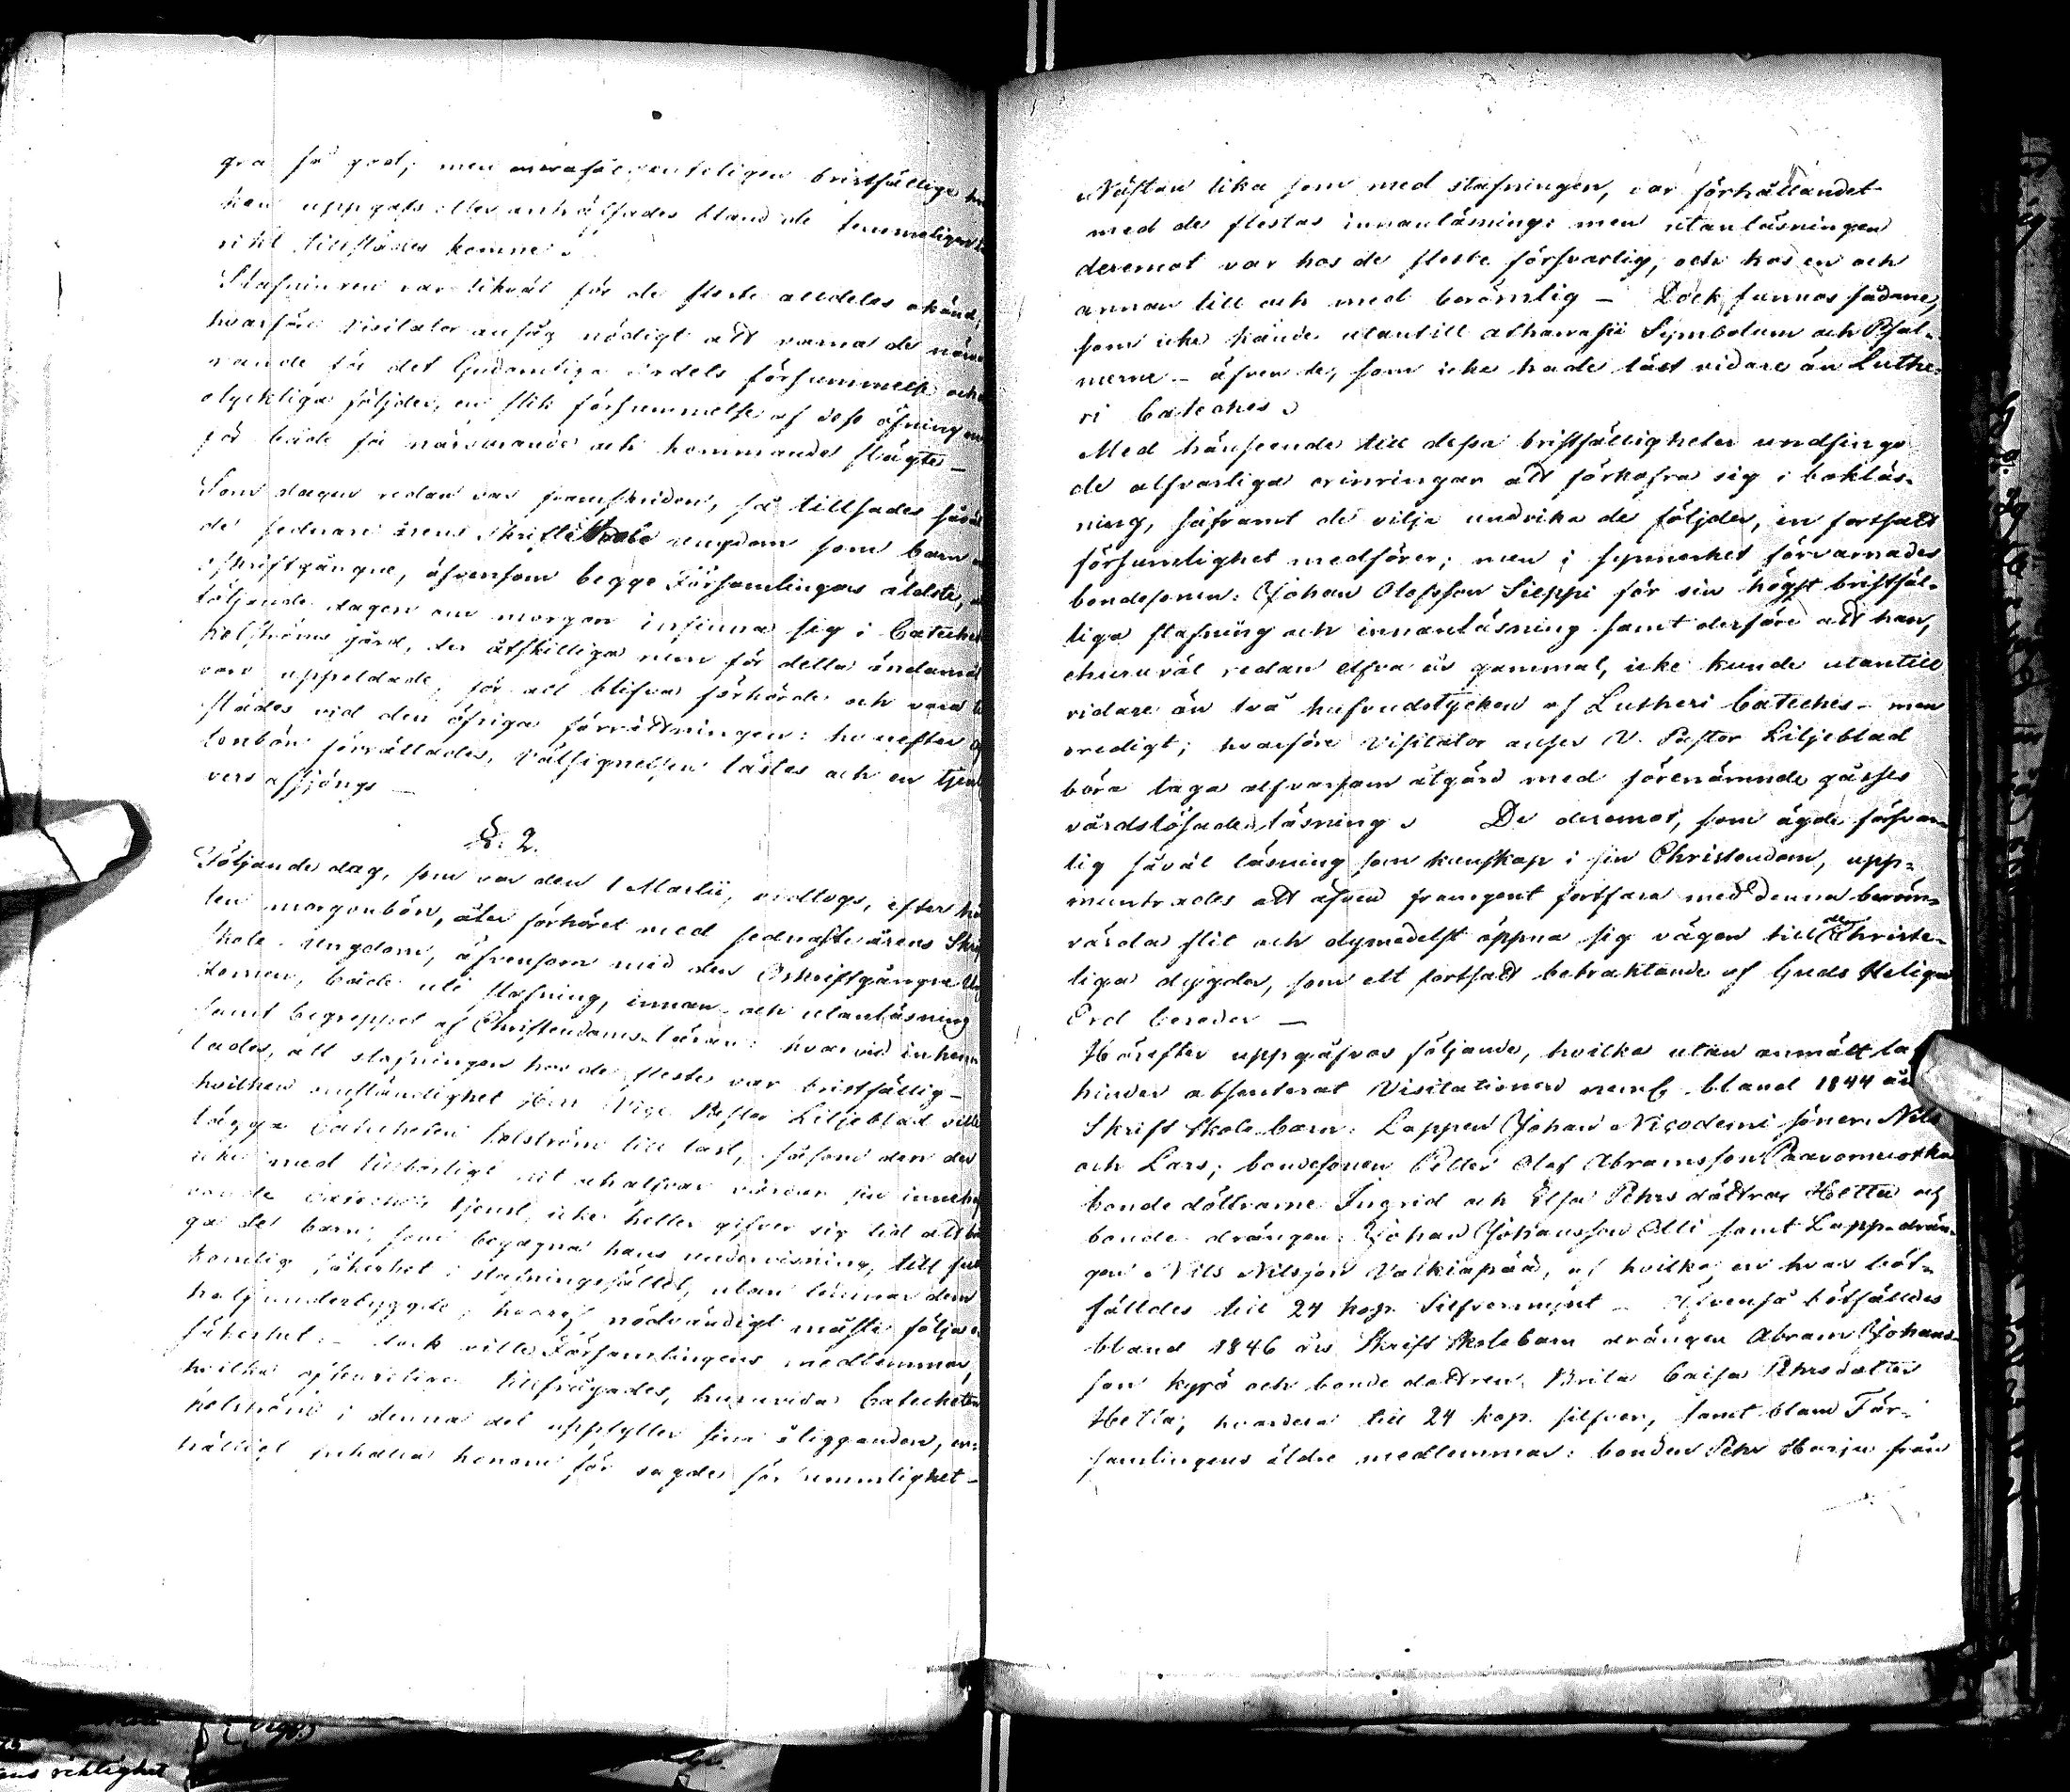 gra så god; men oursäktentligen bristfällige
kan uppgafs eller anträffades bland de temmeligen
rikt tillstädes komne.
Stafningen var likväl för de fleste alldeles okänd;
hvarföre Visitator ansåg nödigt att varna de närva
rande för det Gudomliga ordets försummelse och
olyckliga följder, en slik försummelse af dess öfning
för både för närvarande och kommande slägte –
Som dagen redan var framskriden, så tillsades såväl
de sednare årens Skriftskole ungdom som barn
oskriftgångne, äfvensom begge Församlingars äldste,
följande dagen om morgon infinna sig i Catechet
Kolströms gård, der åtskilliga rum för detta ändamål
voro uppeldade, för att blifva förhörde och vara till
städes vid den öfriga förrättningen: hvarefter
tonbön förrättades, Välsignelsen lästes och en
vers afsjöngs –
§. 2.
Följande dag, som var den 1 Martii, vidtogs, efter
len morgonbön, åter förhöret med sednaste årens Skrift
skole-Ungdom, äfvensom med den Oskriftgångna
domen, både uti stafning, innan- och utanläsning
samt begreppet af Christendoms-läran: hvarvid inhem
tades, att stafningen hos de fleste var bristfällig –
hvilken omständighet Herr Vice Pastor Liljeblad ville
lägga Catecheten Kolström till last, såsom den der
icke med tillbörligt nit och alfvar vårdar sin inneha
vande Catechets tjenst, icke heller gifver sig tid att
ga de barn, som begagna hans undervisning, till full
komlig säkerhet i stafningssättet, utan lemnar dem
halfunderbyggde; hvaraf nödvändigt måste följa
säkerhet: – dock ville Församlingens medlemmar,
hvilka offentligen tillfrågades, huruvida Catecheten
Kolström i denna del uppfyller sina åligganden, en-
hälligt fritaga honom för sagde försummlighet –
Nästan lika som med stafningen, var förhållandet
med de flestas innanläsning: men utanläsningen
deremot var hos de fleste försvarlig, och hos en och
annan till och med berömlig – Dock funnos sådane,
som icke kände utantill athanasii Symbolum och Psal-
merne – äfven de, som icke hade läst vidare än Luthe-
ri Cateches.
Med hänseende till dessa bristfälligheter undfingo
de alfvarliga erinringar att förkofra sig i bokläs-
ning, såframt de vilja undvika de följder, en fortsatt
försumlighet medförer; men i synnerhet förvarnades
bondesonen: Johan Olofsson Sieppi för sin högst bristfäl-
liga stafning och innanläsning samt derföre att han,
ehuruväl redan elfva år gammal, icke kunde utantill
vidare än två hufvudstycken af Lutheri Cateches – men
oredigt; hvarföre Visitator anser V. Pastor Liljeblad
böra taga alfvarsam åtgärd med förenämnde gåsses
vårdslösade läsning. De deremot, som ägde försvar-
lig såväl läsning som kunskap i sin Christendom, upp-
muntrades att äfven framgent fortfara med denna beröm-
värda flit och dymedelst öppna sig vägen till de Christe-
liga dygder, som ett fortsatt betraktande af Guds Heliga
Ord bereder –
Härefter uppgåfvos följande, hvilka utan anmält la
hinder absenterat Visitationen neml. bland 1844 års
Skriftskole barn: Lappen Johan Nicodemi söner Nils
och Lars; bondesonen Petter Olof Abramsson Paavomuotka
bonde döttrarne Ingrid och Elsa Pehrs döttrar Hetta och
bonde-drängen: Johan Johansson Olli samt Lapp-drän-
gen Nils Nilsson Valkiapää, af hvilka en hvar böt-
fälldes till 24 kop. Silfvermynt – Äfvenså bötfälldes
bland 1846 års Skriftskolebarn drängen Abram Johans-
son Kyrö och bonde dottren Brita Caisa Pehrsdotter
Hetta; hvardera till 24 kop. silfver, samt bland För-
samlingens äldre medlemmar: bonden Pehr Harju från
ens riktighet